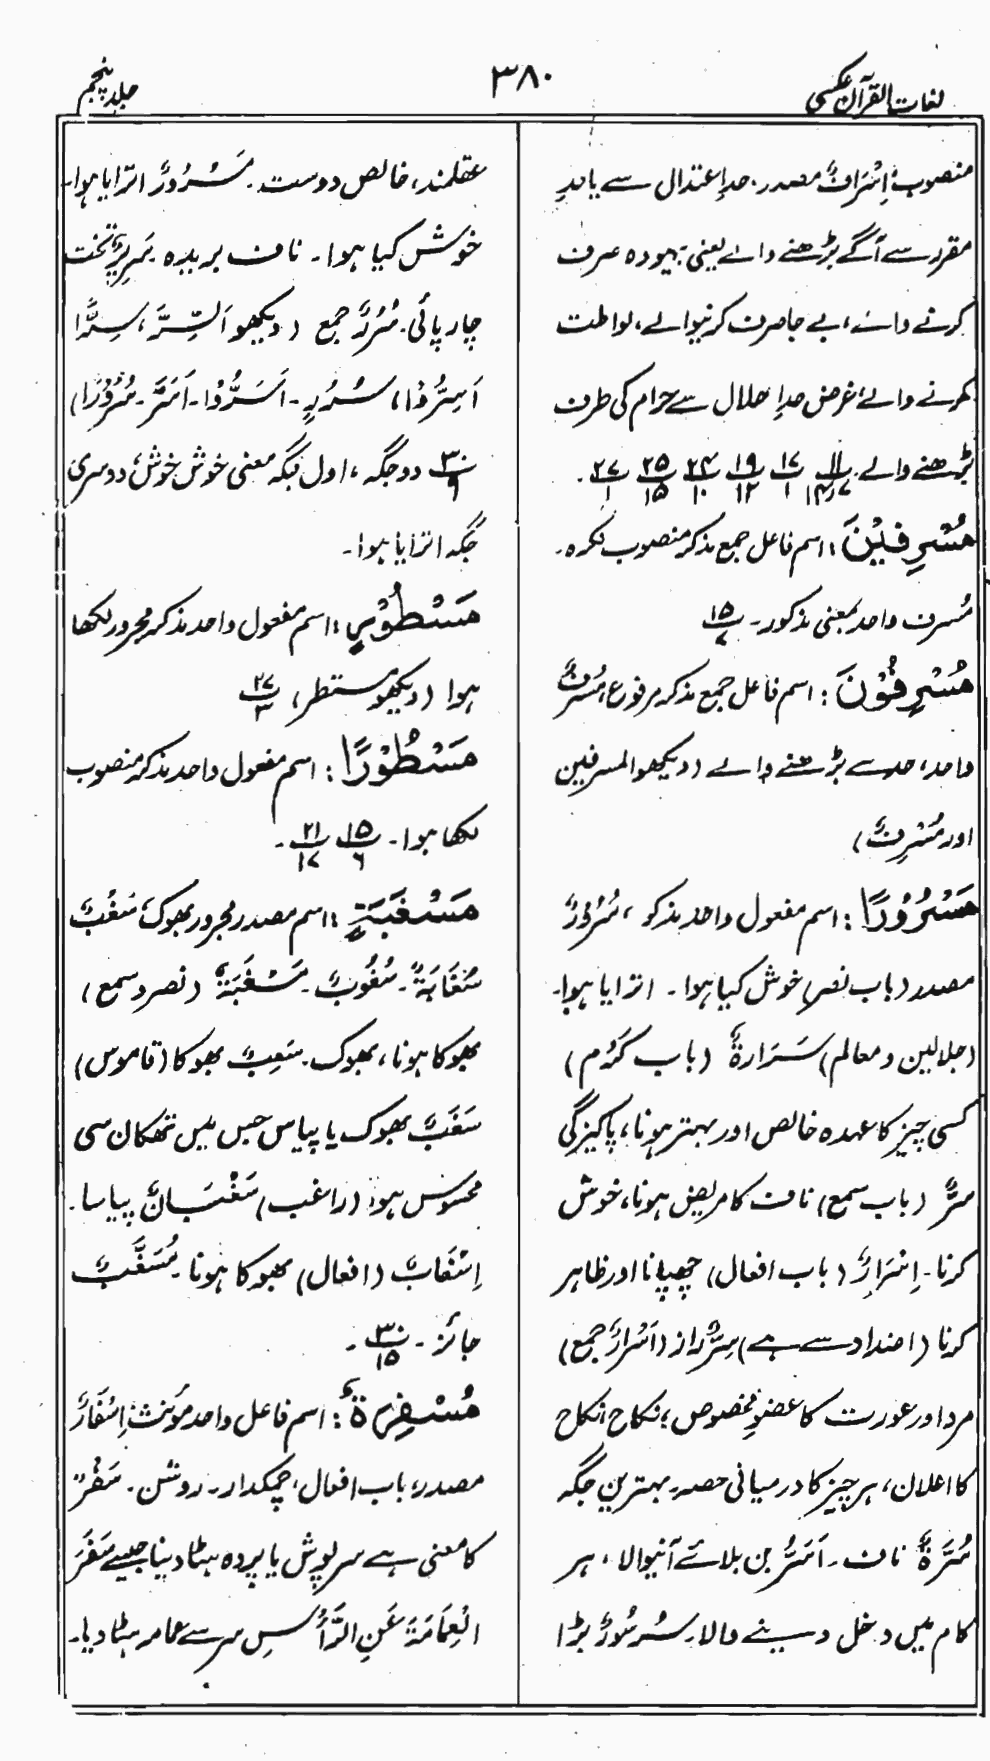 لغات القرآن عکسی
۳۸۰
جلد پنجم
منصوب، اِسْرَافٌ مصدر۔ حدِ اعتدال سے یا حدِ
مقرر سے آگے بڑھنے والے یعنی بیہودہ صرف
کرنے والے، بے جا صرف کرنیوالے، لواطت
کرنے والے، غرض حدِ حلال سے حرام کی طرف
بڑھنے والے ۱۱/۷و۱۴ ۱۷/۱ ۱۹/۱۲ ۲۴/۱۰ ۲۵/۱۵ ۲۷/۱ ۔
مُسْرِفِیْنَ : اسم فاعل جمع مذکر منصوب نکرہ۔
مُسرف واحد بمعنی مذکور۔ ۱۵/۷
مُسْرِفُوْنَ : اسم فاعل جمع مذکر مرفوع مُسْرِفٌ
واحد، حد سے بڑھنے والے (دیکھو المسرفین
اور مُسْرِفٌ)
مَسْرُوْرًا : اسم مفعول واحد مذکر، سُرُوْرٌ
مصدر (باب نصر) خوش کیا ہوا۔ اترایا ہوا۔
(جلالین و معالم) سَرَارَۃٌ (باب کَرُمَ)
کسی چیز کا عمدہ خالص اور بہتر ہونا، پاکیزگی
سَرٌّ (باب سمع) ناف کا مریض ہونا، خوش
کرنا۔ اِسْرَارٌ (باب افعال) چھپانا اور ظاہر
کرنا (اضداد سے ہے) سِرٌّ راز (اَسْرَارٌ جمع)
مرد اور عورت کا عضوِ مخصوص، نکاح، نکاح
کا اعلان، ہر چیز کا درمیانی حصہ۔ بہترین جگہ
سُرَّۃٌ ناف۔ اَسَرُّ بن بلائے آنیوالا، ہر
کام میں دخل دینے والا۔ سُرسُورٌ بڑا
عقلمند، خالص دوست۔ مَسْرُوْرٌ اترایا ہوا۔
خوش کیا ہوا۔ ناف بریدہ۔ سَرِیْرٌ تخت
چارپائی۔ سُرُرٌ جمع (دیکھو اَلسِّرَّ، سِرًّا
اَسِرُّوْا، سُرُرٍ۔ اَسَرُّوْا۔ اَسَرَّ۔ سُرُوْرًا)
۳۰/۹ دو جگہ، اول جگہ معنی خوش خوش، دوسری
جگہ اترایا ہوا۔
مَسْطُوْرٍ : اسم مفعول واحد مذکر مجرور لکھا
ہوا (دیکھو مستطر) ۲۷/۳
مَسْطُوْرًا : اسم مفعول واحد مذکر منصوب
لکھا ہوا۔ ۱۵/۶ ۲۱/۱۷ ۔
مَسْغَبَۃٍ : اسم مصدر مجرور بھوک، سَغْبٌ
سَغَابَۃٌ۔ سُغُوْبٌ۔ مَسْغَبَۃٌ (نصر و سمع)
بھوکا ہونا، بھوک۔ سَغِبٌ بھوکا (قاموس)
سَغَبٌ بھوک یا پیاس جس میں تھکان سی
محسوس ہو (راغب) سَغْبَانُ پیاسا۔
اِسْغَابٌ (افعال) بھوکا ہونا۔ مُسَغَّبٌ
جائز۔ ۳۰/۱۵ ۔
مُسْفِرَۃٌ : اسم فاعل واحد مؤنث، اِسْفَارٌ
مصدر، باب افعال، چمکدار۔ روشن۔ سَفْرٌ
کا معنی ہے سرپوش یا پردہ ہٹا دینا جیسے سَفَرَ
الْعِمَامَۃَ عَنِ الرَّأسِ سر سے عمامہ ہٹا دیا۔